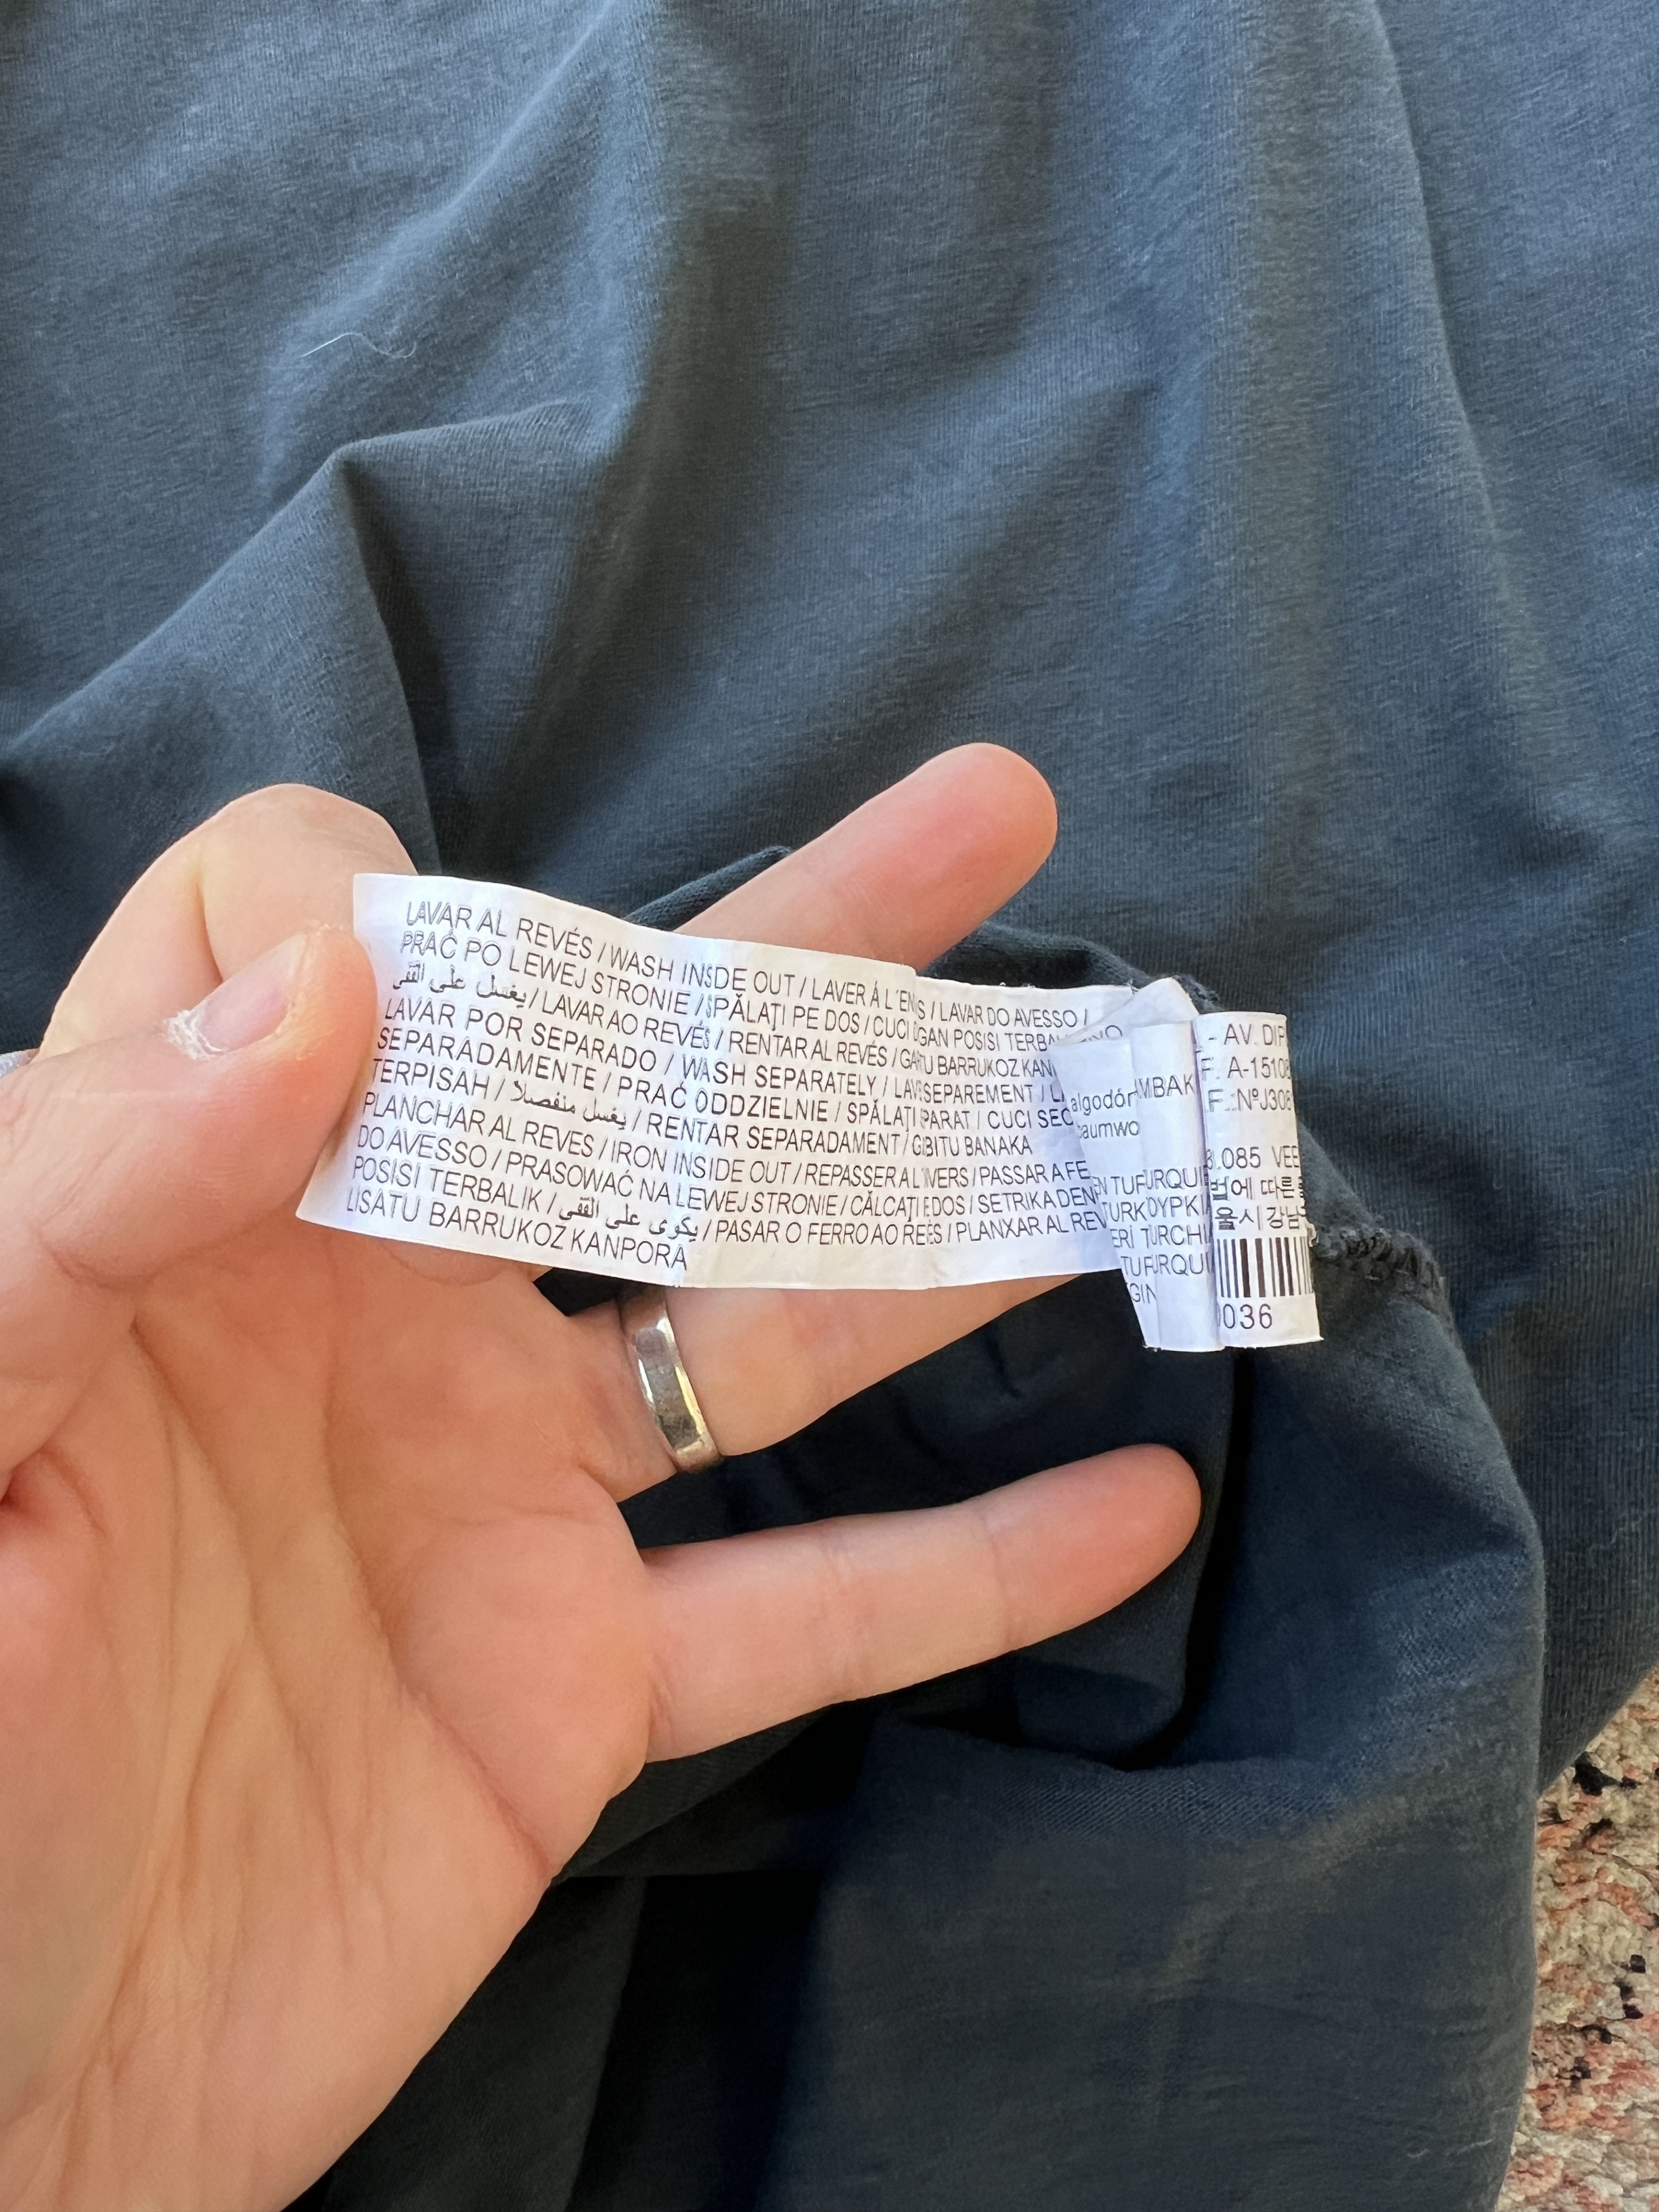 LAVAR AL REVÉS / WASH INSDE OUT / LAVER À L'EN S / LAVAR DO AVESSO /
PRAĆ PO LEWEJ STRONIE / SPĂLAŢI PE DOS / CUCI GAN POSISI
يغسل على القفى / LAVAR AO REVÉS / RENTAR AL REVÉS / BARRUKOZ
LAVAR POR SEPARADO / WASH SEPARATELY / LAV SEPAREMENT /
SEPARADAMENTE / PRAĆ ODDZIELNIE / SPĂLAŢI PARAT / CUCI
TERPISAH / يغسل منفصلا / RENTAR SEPARADAMENT / BITU BANAKA
PLANCHAR AL REVES / IRON INSIDE OUT / REPASSER A L VERS / PASSAR A FE
DO AVESSO / PRASOWAĆ NA LEWEJ STRONIE / CĂLCAŢI DOS / SETRIKA DEN
POSISI TERBALIK / يكوى على القفى / PASAR O FERRO AO RE ÉS / PLANXAR AL REV
LISATU BARRUKOZ KANPORA
algodón
baumwo
MBAK
TURQUI
TURCHI
- AV. DIP
A-15108
Nº J306
085 VEE
법에 따른
울시 강남
036